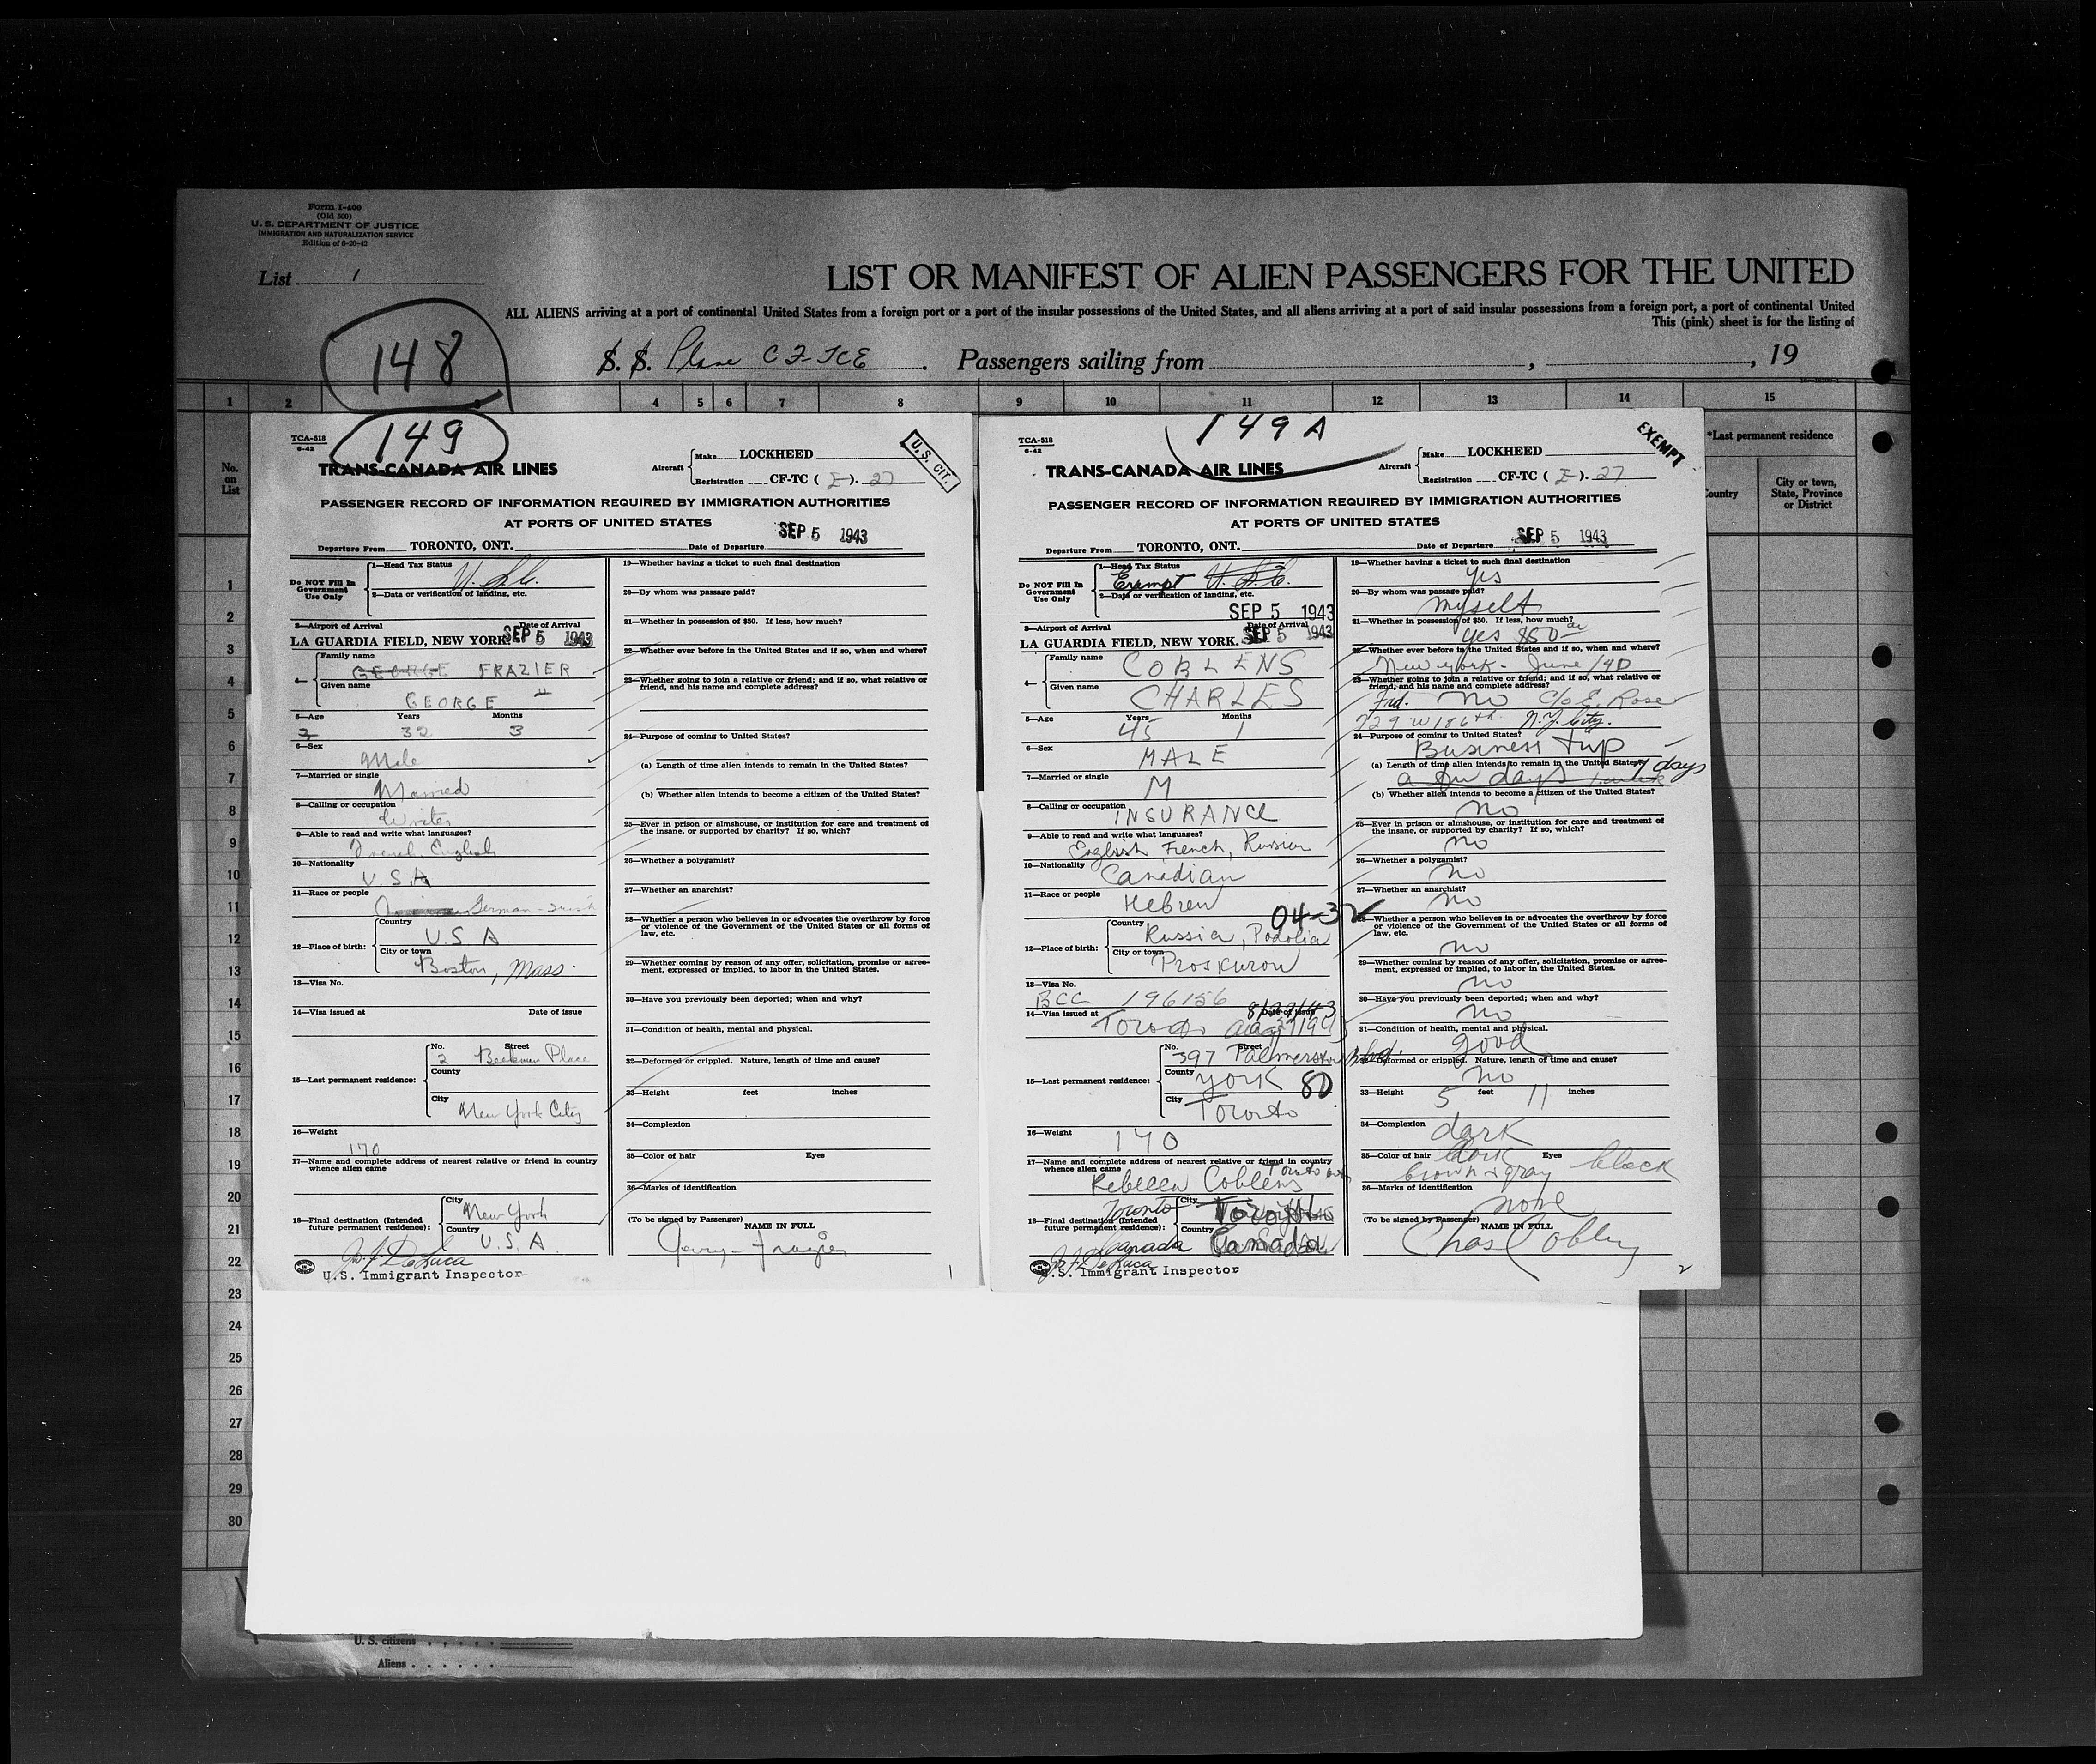 Form I-400
(Old 500)
U. S. DEPARTMENT OF JUSTICE
IMMIGRATION AND NATURALIZATION SERVICE
Edition of 6-20-42
List 1
LIST OR MANIFEST OF ALIEN PASSENGERS FOR THE UNITED
ALL ALIENS arriving at a port of continental United States from a foreign port or a port of the insular possessions of the United States, and all aliens arriving at a port of said insular possessions from a foreign port, a port of continental United
This (pink) sheet is for the listing of
148
S. S. Plane CF-TCE . Passengers sailing from , , 19
1 2 3 4 5 6 7 8 9 10 11 12 13 14 15
No. on List
*Last permanent residence
Country
City or town, State, Province or District
1
2
3
4
5
6
7
8
9
10
11
12
13
14
15
16
17
18
19
20
21
22
23
24
25
26
27
28
29
30
U. S. citizens
Aliens
149
TCA-518
6-42
TRANS-CANADA AIR LINES
Aircraft
Make LOCKHEED
Registration CF-TC ( E ). 27
U.S. CIT.
PASSENGER RECORD OF INFORMATION REQUIRED BY IMMIGRATION AUTHORITIES
AT PORTS OF UNITED STATES
Departure From TORONTO, ONT. Date of Departure SEP 5 1943
Do NOT Fill In
Government
Use Only
1—Head Tax Status U.S.C.
2—Data or verification of landing, etc.
3—Airport of Arrival Date of Arrival
LA GUARDIA FIELD, NEW YORK. SEP 5 1943
4—
Family name GEORGE FRAZIER
Given name GEORGE
5—Age Years Months
32 3
6—Sex
Male
7—Married or single
Married
8—Calling or occupation
Writer
9—Able to read and write what languages?
French, English
10—Nationality
U.S.A
11—Race or people
German - Irish
12—Place of birth:
Country
U.S.A
City or town
Boston, Mass.
13—Visa No.
14—Visa issued at Date of issue
15—Last permanent residence:
No. Street
2 Beekman Place
County
City
New York City
16—Weight
170
17—Name and complete address of nearest relative or friend in country
whence alien came
18—Final destination (Intended
future permanent residence):
City
New York
Country
U.S.A.
U.S. Immigrant Inspector
19—Whether having a ticket to such final destination
20—By whom was passage paid?
21—Whether in possession of $50. If less, how much?
22—Whether ever before in the United States and if so, when and where?
23—Whether going to join a relative or friend; and if so, what relative or
friend, and his name and complete address?
24—Purpose of coming to United States?
(a) Length of time alien intends to remain in the United States?
(b) Whether alien intends to become a citizen of the United States?
25—Ever in prison or almshouse, or institution for care and treatment of
the insane, or supported by charity? If so, which?
26—Whether a polygamist?
27—Whether an anarchist?
28—Whether a person who believes in or advocates the overthrow by force
or violence of the Government of the United States or all forms of
law, etc.
29—Whether coming by reason of any offer, solicitation, promise or agree-
ment, expressed or implied, to labor in the United States.
30—Have you previously been deported; when and why?
31—Condition of health, mental and physical.
32—Deformed or crippled. Nature, length of time and cause?
33—Height feet inches
34—Complexion
35—Color of hair Eyes
36—Marks of identification
(To be signed by Passenger) NAME IN FULL
1
149 A
TCA-518
6-42
TRANS-CANADA AIR LINES
Aircraft
Make LOCKHEED
Registration CF-TC ( E ). 27
EXEMPT
PASSENGER RECORD OF INFORMATION REQUIRED BY IMMIGRATION AUTHORITIES
AT PORTS OF UNITED STATES
Departure From TORONTO, ONT. Date of Departure SEP 5 1943
Do NOT Fill In
Government
Use Only
1—Head Tax Status
Exempt U.S.C.
2—Data or verification of landing, etc.
SEP 5 1943
3—Airport of Arrival Date of Arrival
LA GUARDIA FIELD, NEW YORK. SEP 5 1943
4—
Family name COBLENS
Given name CHARLES
5—Age Years Months
45 1
6—Sex
MALE
7—Married or single
M
8—Calling or occupation
INSURANCE
9—Able to read and write what languages?
English French, Russian
10—Nationality
Canadian
11—Race or people
Hebrew
04-32
12—Place of birth:
Country
Russia, Podolia
City or town
Proskurow
13—Visa No.
BCC 196156
8/27/43
14—Visa issued at Date of issue
Toronto Aug 27/943
15—Last permanent residence:
No. Street
397 Palmerston Blvd.
County
York 80
City
Toronto
16—Weight
170
17—Name and complete address of nearest relative or friend in country
whence alien came
Toronto ont
Rebecca Coblens
18—Final destination (Intended
future permanent residence):
City
Toronto
Country
Canada
U.S. Immigrant Inspector
19—Whether having a ticket to such final destination
yes
20—By whom was passage paid?
myself
21—Whether in possession of $50. If less, how much?
yes $50
22—Whether ever before in the United States and if so, when and where?
New York - June /40
23—Whether going to join a relative or friend; and if so, what relative or
friend, and his name and complete address?
Frd. no C/o E. Rose
729 W 186th N.Y. City.
24—Purpose of coming to United States?
Business trip
(a) Length of time alien intends to remain in the United States?
7 days
a few days 1 week
(b) Whether alien intends to become a citizen of the United States?
no
25—Ever in prison or almshouse, or institution for care and treatment of
the insane, or supported by charity? If so, which?
no
26—Whether a polygamist?
no
27—Whether an anarchist?
no
28—Whether a person who believes in or advocates the overthrow by force
or violence of the Government of the United States or all forms of
law, etc.
no
29—Whether coming by reason of any offer, solicitation, promise or agree-
ment, expressed or implied, to labor in the United States.
no
30—Have you previously been deported; when and why?
no
31—Condition of health, mental and physical.
good
32—Deformed or crippled. Nature, length of time and cause?
no
33—Height 5 feet 11 inches
34—Complexion
dark
35—Color of hair dark Eyes
brown & gray black
36—Marks of identification
none
(To be signed by Passenger) NAME IN FULL
Chas Coblens
2